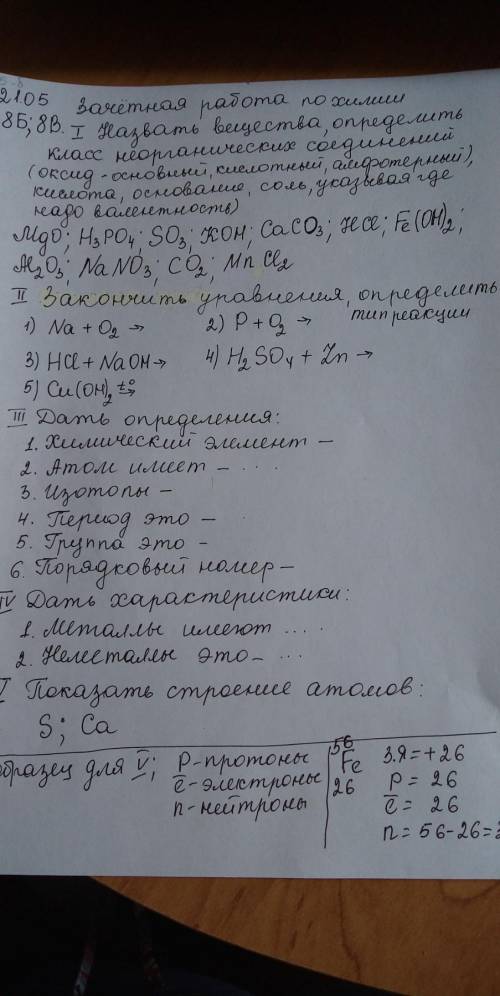 21.05 Зачётная работа по химии
8Б; 8В. I Назвать вещества, определить
класс неорганических соединений
(оксид - основный, кислотный, амфотерный),
кислота, основание, соль, указывая где
надо валентность)
MgO; H₃PO₄; SO₃; KOH; CaCO₃; HCl; Fe(OH)₂;
Al₂O₃; NaNO₃; CO₂; MnCl₂
II Закончить уравнения, определить
1) Na + O₂ → 2) P + O₂ → тип реакции
3) HCl + NaOH → 4) H₂SO₄ + Zn →
5) Cu(OH)₂ t° →
III Дать определения:
1. Химический элемент –
2. Атом имеет – ...
3. Изотопы –
4. Период это –
5. Группа это –
6. Порядковый номер –
IV Дать характеристики:
1. Металлы имеют ...
2. Неметаллы это – ...
V Показать строение атомов:
S; Ca
образец для V; p - протоны
ē - электроны
n - нейтроны
56
Fe
26
З.Я = +26
p = 26
ē = 26
n = 56 - 26 = 3